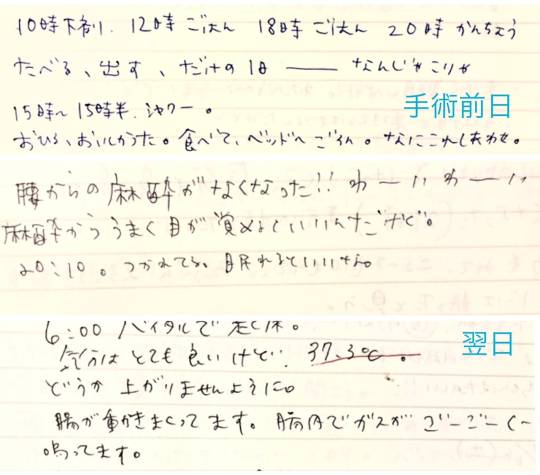 10時下剤. 12時ごはん 18時ごはん 20時かんちょう
たべる、出す、だけの1日 ―― なんじゃこりゃ
15時〜15時半.シャワー。
手術前日
おひる、おいしかった。食べて、ベッドへゴロン。なにこれしあわせ。
腰からの麻酔がなくなった!! わーいわーい
麻酔からうまく目が覚めるといいんだけど。
20:10。つかれてる。眠れるといいな。
6:00 バイタルで起床。
翌日
気分はとても良いけど 37.3℃。
どうか上がりませんように。
腸が動きまくってます。腸内でガスがゴーゴーぐー
鳴ってます。